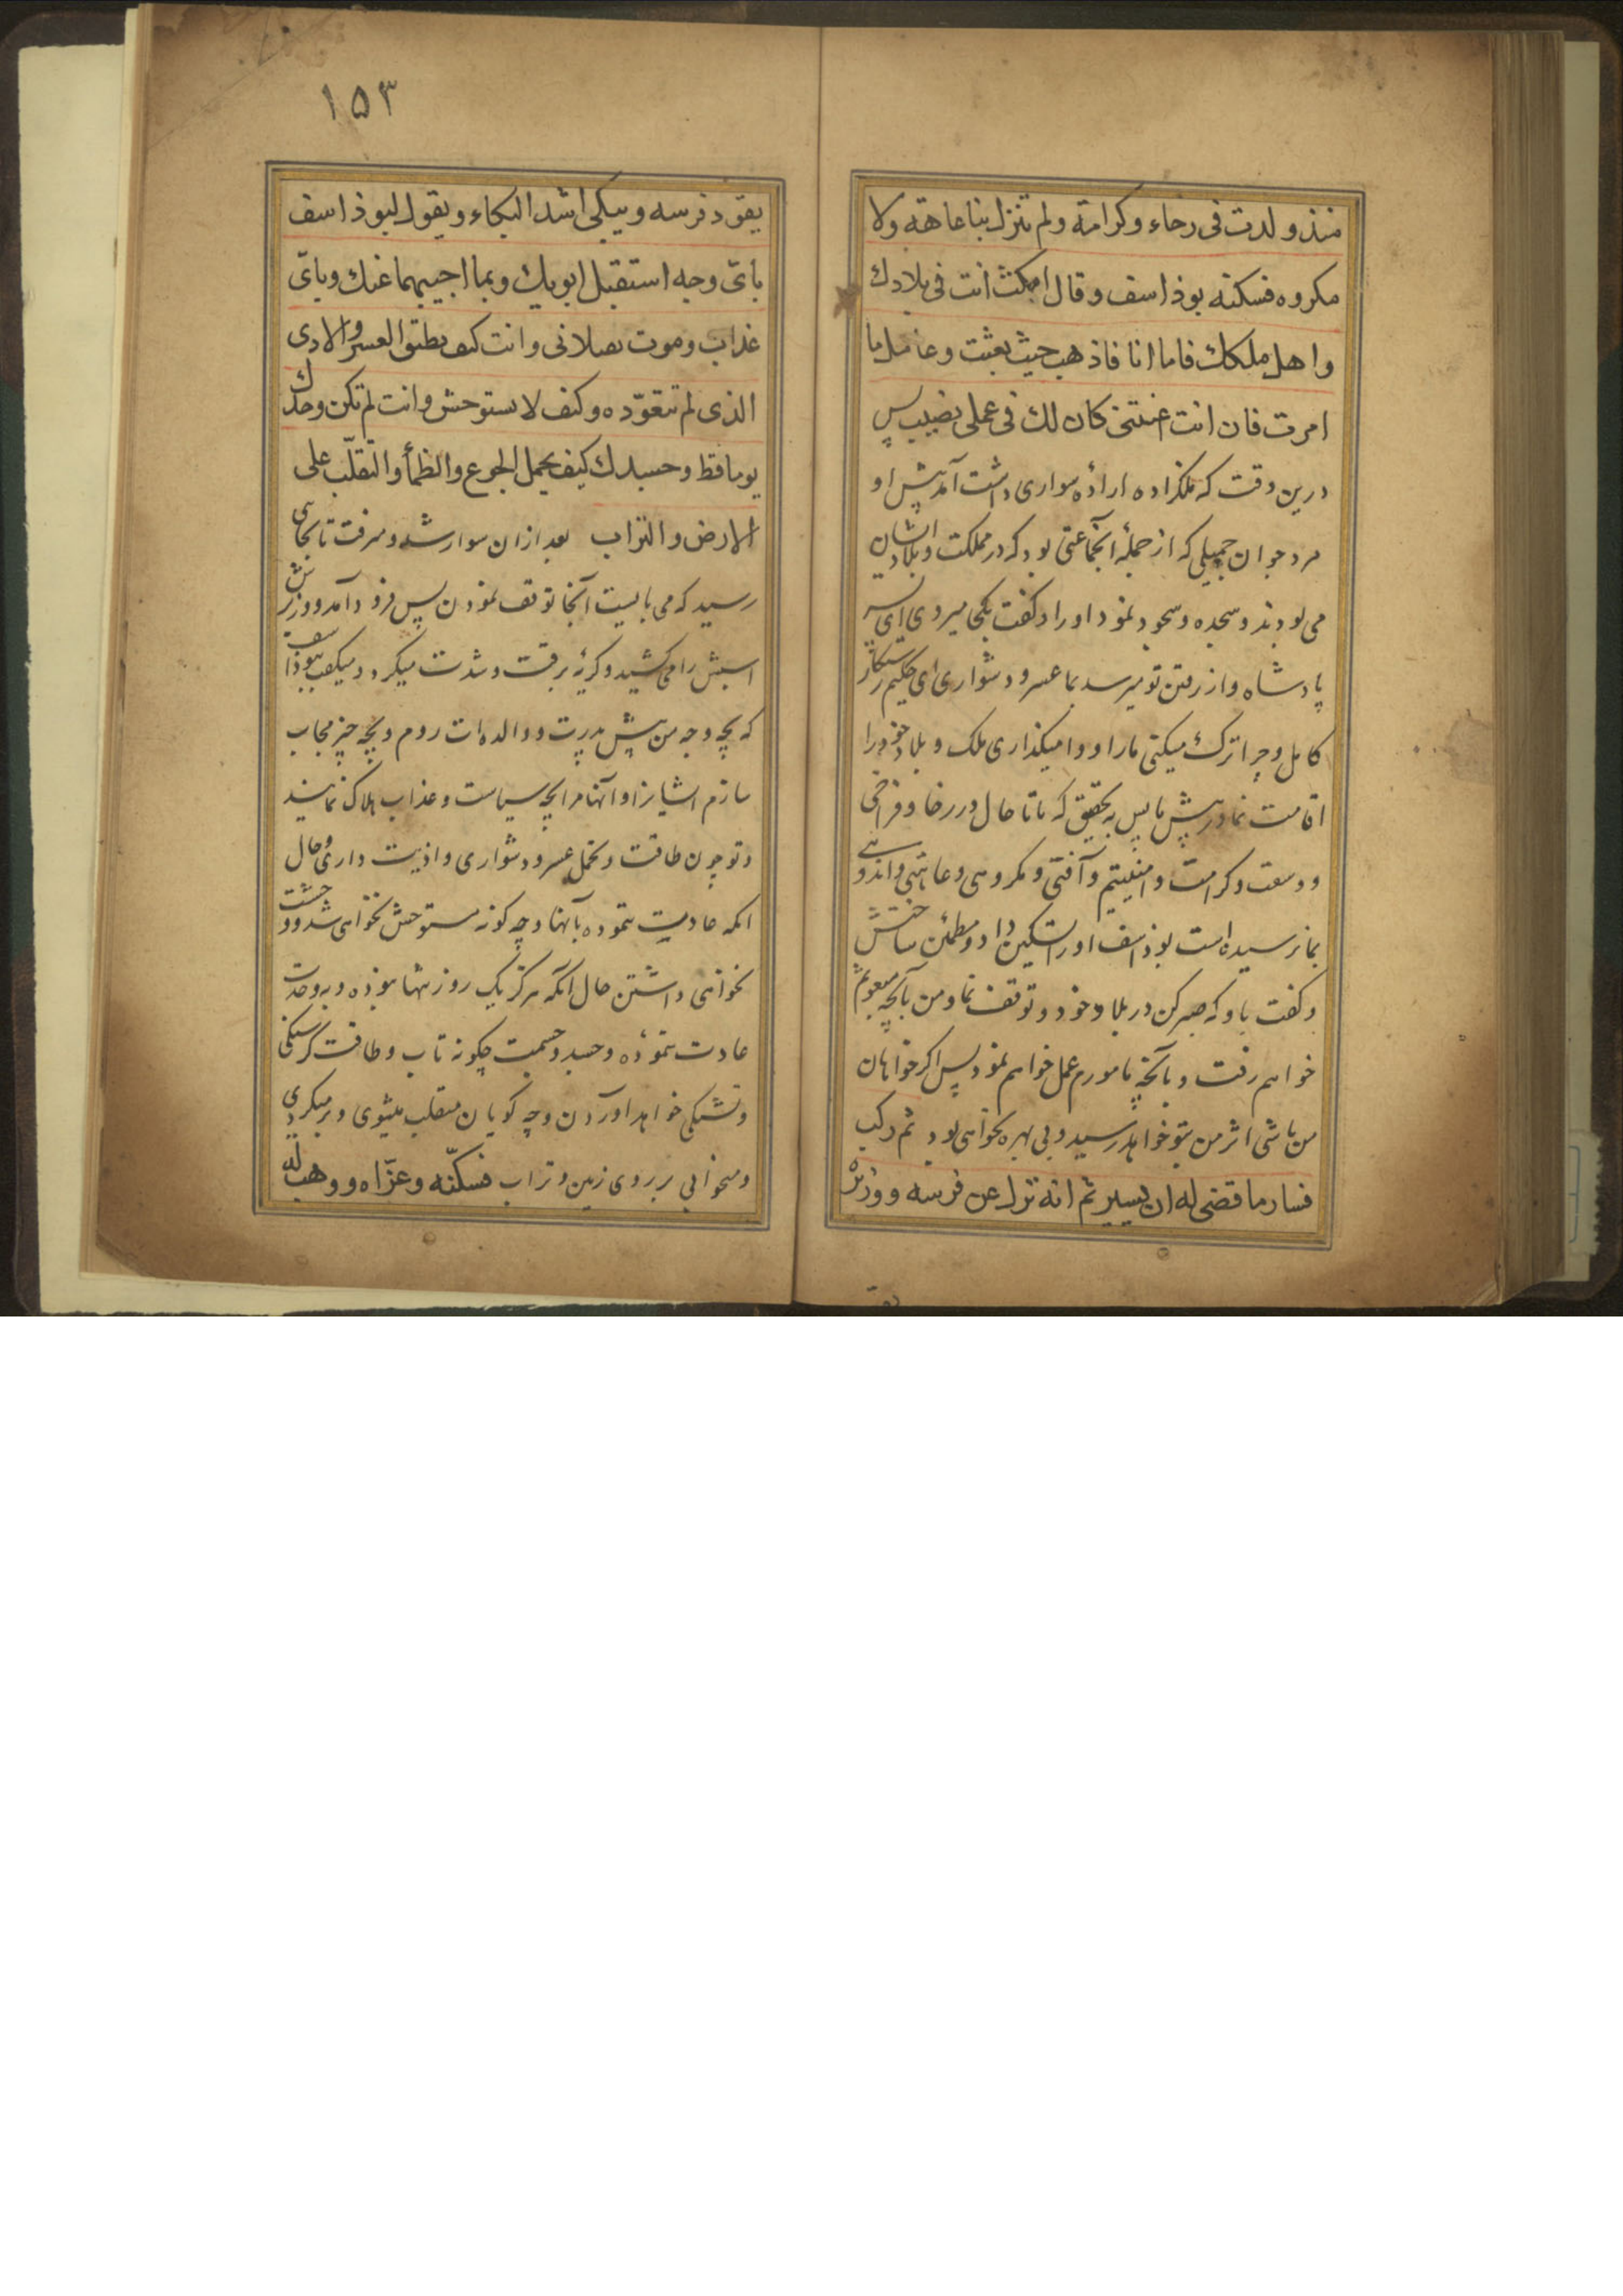 منذ ولدت فی رخاء وکرامة ولم تنزل بنا عاهة ولا
مکروه فسکته بوذاسف وقال امکث انت فی بلادك
واهل ملکك فاما انا فاذهب حیث بعثت وعامل ما
امرت فان انت اعنتنی کان لك فی عملی نصیب پس
درین وقت که ملکزاده اراده سواری داشت آمد پیش او
مرد جوان جمیلی که از جمله آنجماعتی بود که در مملکت و بلاد ایشان
می بودند و سجده و سجود نمود او را و گفت بکجا میروی ای پسر
پادشاه و از رفتن تو میرسد بما عسر و دشواری ای حکیم رستکار
کامل و چرا ترک میکنی ما را و وا میکذاری ملک و بلاد خود را
اقامت نما در پیش ما پس به تحقیق که ما تا حال در رخا و فراخی
و وسعت و کرامت و آفتی و مکروهی و عاهتی و اندوهی
بما نرسیده است بوذاسف او را تسکین داد و مطمئن ساختش
و گفت باو که صبر کن در بلاد خود و توقف نما و من بآنچه مبعوثم
خواهم رفت و بآنچه مامورم عمل خواهم نمود پس اکر خواهان
من باشی اثر من بتو خواهد رسید و بی بهره نخواهی بود ثم رکب
فسار ما قضی له ان یسیر ثم انه نزل عن فرسه ووزیره
۱۵۳
یقود فرسه ویبکی اشد البکاء ویقول لبوذاسف
بای وجه استقبل ابویك وبما اجیبهما عنك وبای
عذاب وموت یقتلانی وانت کیف تطیق العسر والاذی
الذی لم تتعوده وکیف لا تستوحش وانت لم تکن وحدك
یوما قط وجسدك کیف یحمل الجوع والظمأ والتقلب علی
الارض والتراب بعد ازان سوار شد و میرفت تا بجای
رسید که می بایست آنجا توقف نمودن پس فرود آمد و وزیرش
اسبش را می کشید و کریه برقت و شدت میکرد و میکفت ببوذاسف
که بچه وجه من پیش پدرت و والده ات روم و بچه چیز مجاب
سازم ایشانرا و آنها مرا بچه سیاست و عذاب هلاک نمایند
و تو چون طاقت و تحمل عسر و دشواری و اذیت داری و حال
آنکه عادت ننموده بآنها و چه کونه مستوحش نخواهی شد و وحشت
نخواهی داشتن حال آنکه هرکز یک روز تنها نبوده و به وحدت
عادت ننموده و جسد و جسمت چکونه تاب و طاقت کرسنکی
و تشنکی خواهد آوردن و چه کویان متقلب میشوی و برمیکردی
و میخوابی بر روی زمین و تراب فسکته وعزاه ووهب له